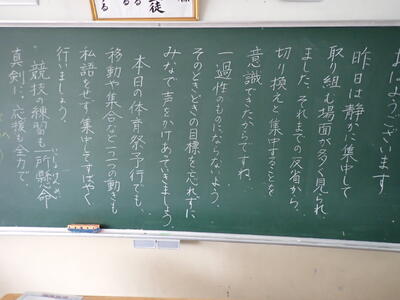 徒
る
おはようございます
昨日は静かに集中して
取り組む場面が多く見られ
ました。それまでの反省から、
切り換えと集中することを
意識できたからですね。
一過性のものにならないよう、
そのときどきの目標を忘れずに
みなで声をかけあっていきましょう。
本日の体育祭予行でも、
移動や集合など一つ一つの動きも
私語をせず集中してすばやく
行いましょう。
競技の練習も一所懸命
真剣に、応援も全力で。